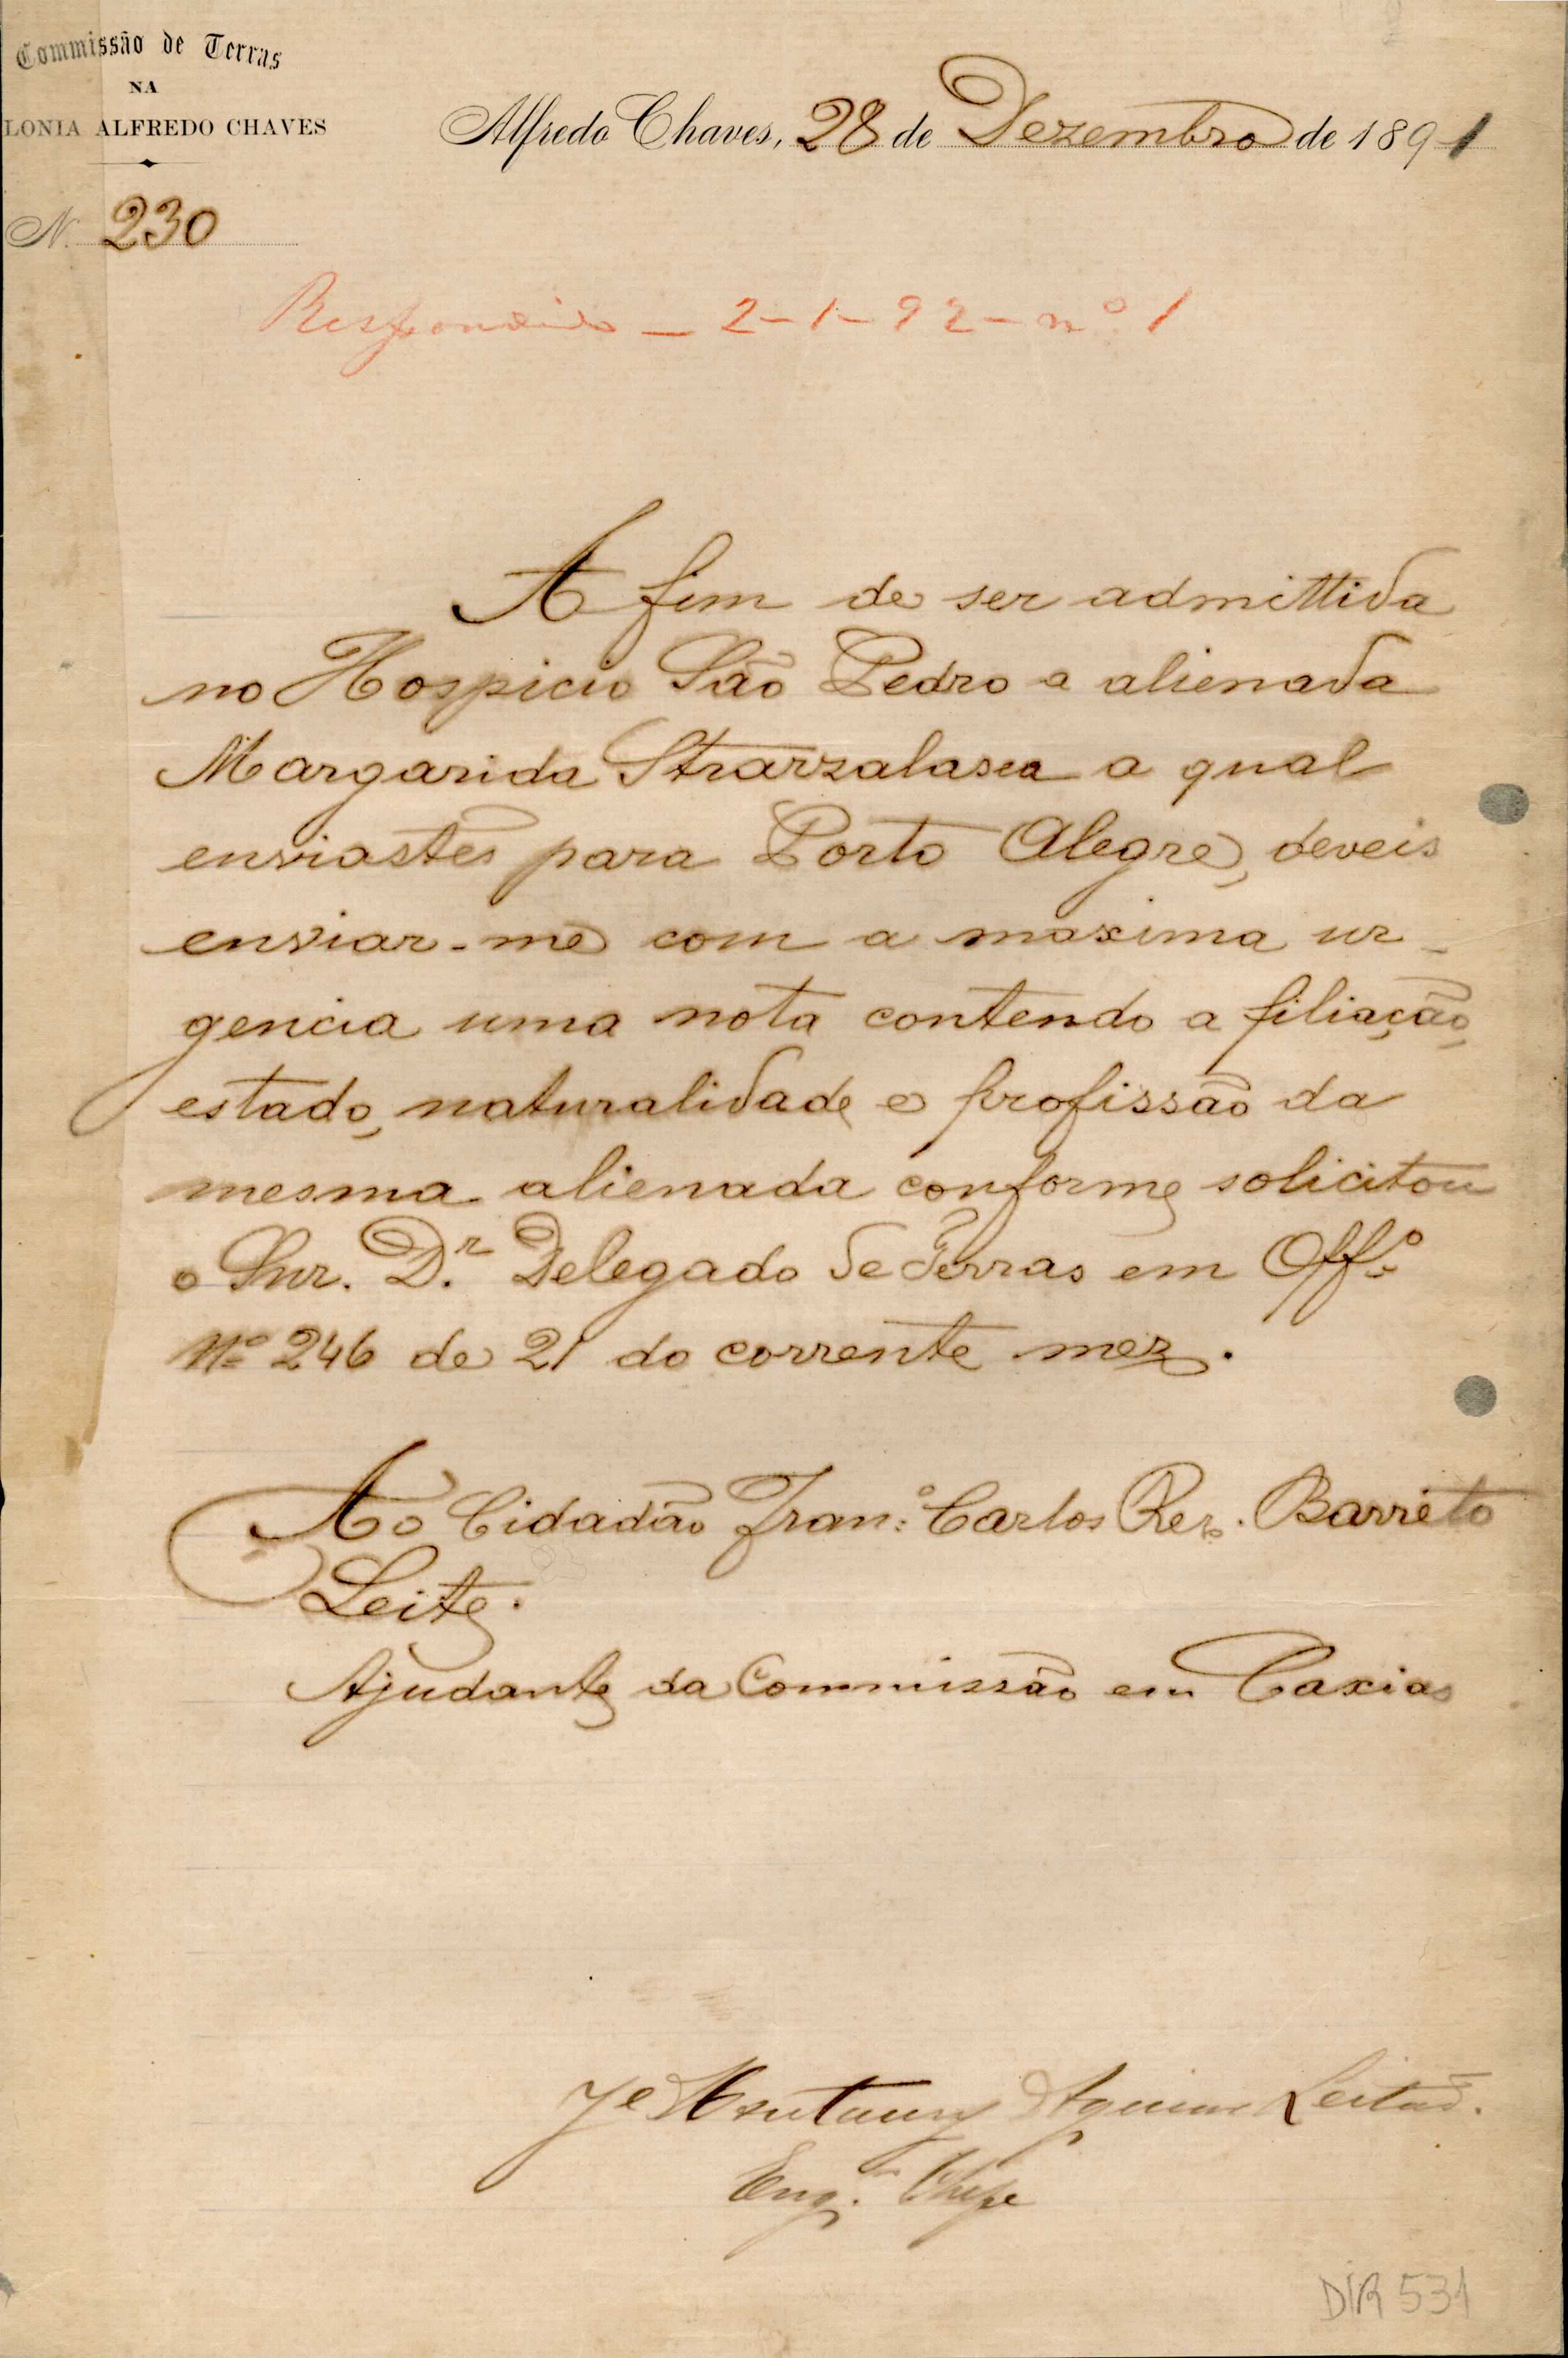 Commissão de Terras
NA
LONIA ALFREDO CHAVES
Alfredo Chaves, 28 de Dezembro de 1891
N. 230
Respondido - 2-1-92 - nº 1
A fim de ser admittida
no Hospicio São Pedro a alienada
Margarida Strarzalasca a qual
enviastes para Porto Alegre, deveis
enviar-me com a maxima ur-
gencia uma nota contendo a filiação,
estado, naturalidade e profissão da
mesma alienada conforme solicitou
o Snr. D.r Delegado de Terras em Off.º
Nº 246 de 21 do corrente mez.
Ao Cidadão Fran.º Carlos Barreto
Leite.
Ajudante da Commissão em Caxias
Je Montaury Aguiar Leitão.
Eng.º Chefe
DIR 531